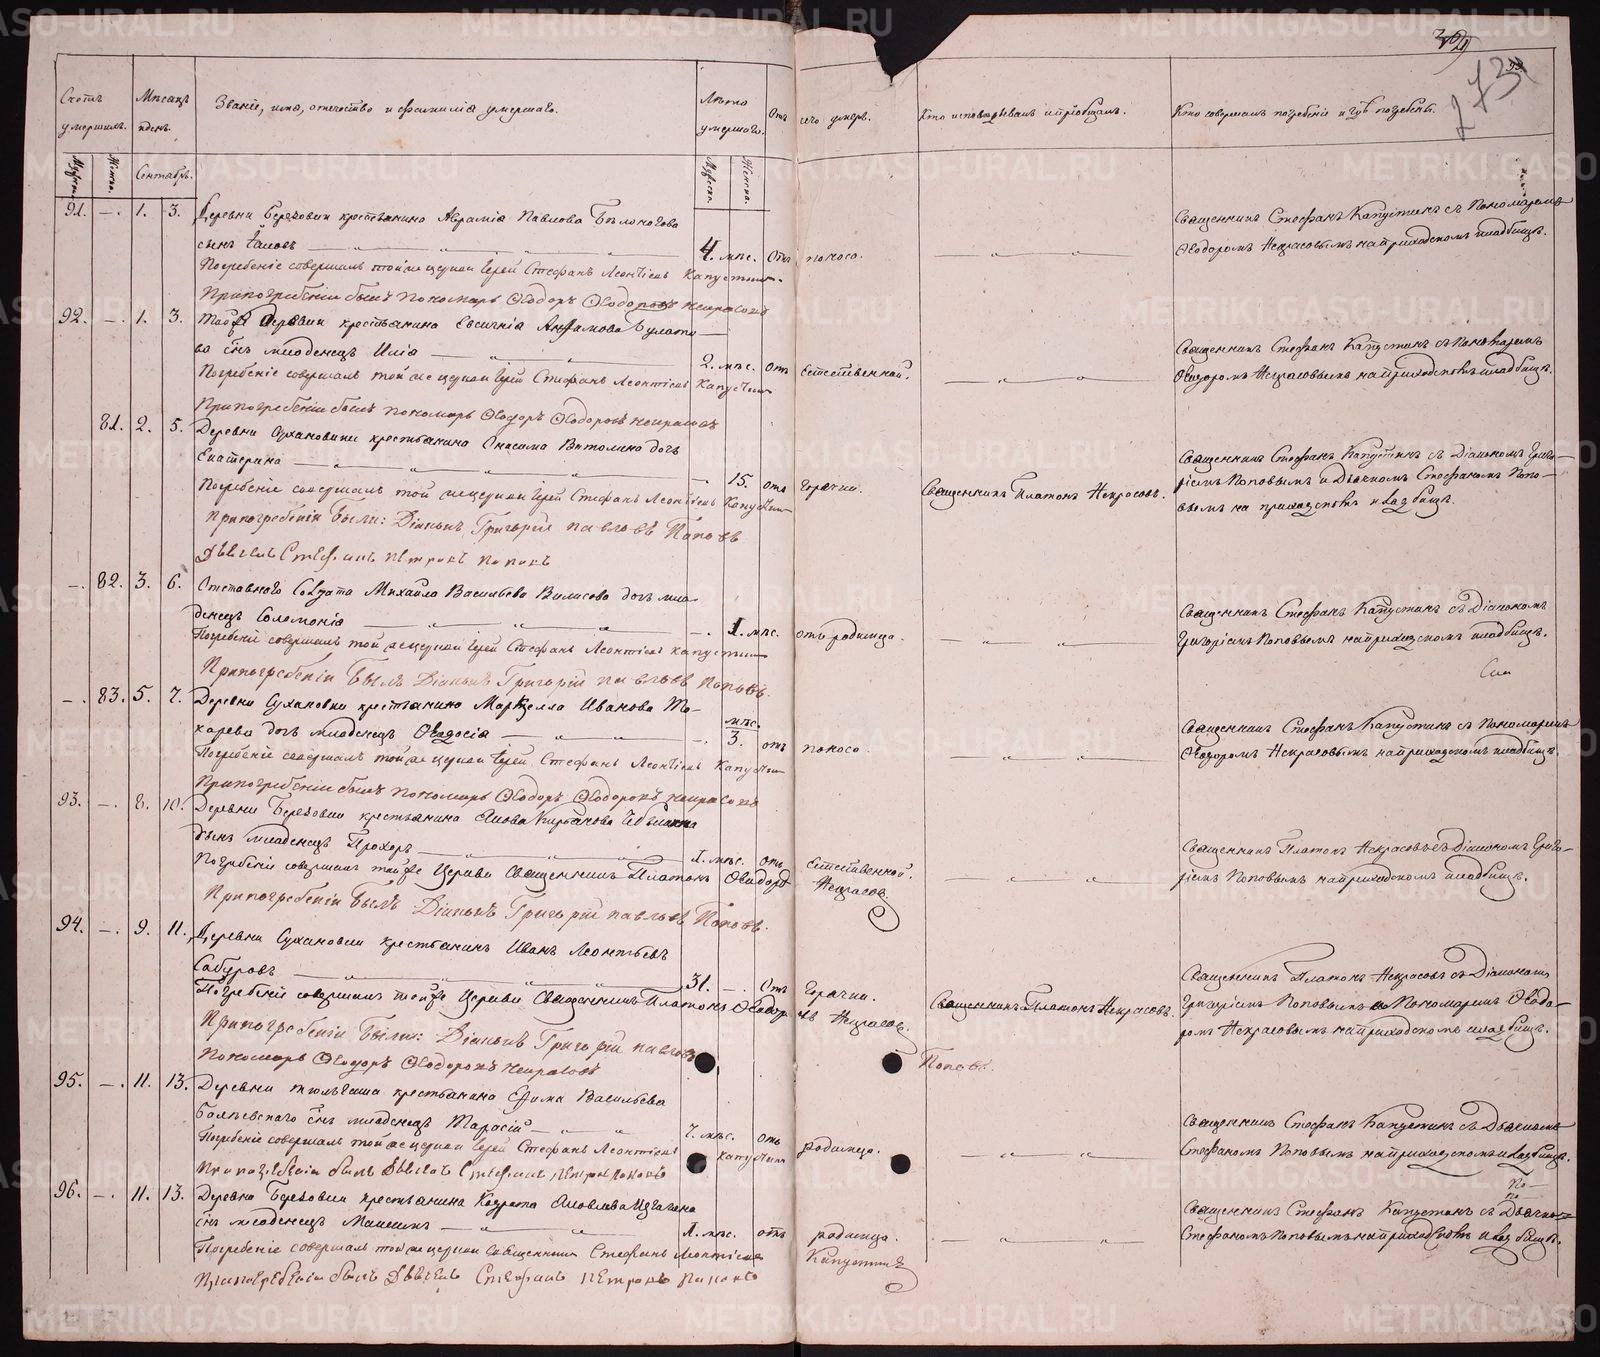 Счетъ умершихъ.
Мѣсяцъ и день.
Званіе, имя, отечество и фамилія умершаго.
Лѣта умершаго.
Отъ чего умеръ.
Кто исповѣдывалъ и пріобщалъ.
Кто совершалъ погребеніе и гдѣ погребены.
273
Мужеска. Женска. Сентябрь. Мужеска. Женска.
91. —. 1. 3. Деревни Березовки крестьянина Аврамія Павлова Бѣлоногова
сынъ Іаковъ 4. мѣс. Отъ поноса.
Священникъ Стефанъ Капустинъ съ Пономаремъ
Ѳеодоромъ Некрасовымъ на приходскомъ кладбищѣ.
Погребеніе совершалъ той же церкви Іерей Стефанъ Леонтіевъ Капустинъ.
При погребеніи былъ пономарь Ѳеодоръ Ѳеодоровъ Некрасовъ
92. —. 1. 3. Той же деревни крестьянина Евсигнія Анфимова Булато-
ва сынъ младенецъ Илія 2. мѣс. отъ Естественной.
Священникъ Стефанъ Капустинъ съ Пономаремъ
Ѳеодоромъ Некрасовымъ на приходскомъ кладбищѣ.
Погребеніе совершалъ той же церкви Іерей Стефанъ Леонтіевъ Капустинъ
При погребеніи былъ пономарь Ѳеодоръ Ѳеодоровъ Некрасовъ
81. 2. 5. Деревни Сухановки крестьянина дочь
Екатерина 15. отъ Горячки. Священникъ Платонъ Некрасовъ.
Священникъ Стефанъ Капустинъ съ Діакономъ Григо-
ріемъ Поповымъ и Дьячкомъ Стефаномъ Попо-
вымъ на приходскомъ кладбищѣ.
Погребеніе совершалъ той же церкви Іерей Стефанъ Леонтіевъ Капустинъ
При погребеніи были: Діаконъ Григорій Павловъ Поповъ
Дьячекъ Стефанъ Петровъ Поповъ
—. 82. 3. 6. Отставного Солдата Михайла Васильева дочь мла-
денецъ Соломонія —. 1. мѣс. отъ родимца.
Священникъ Стефанъ Капустинъ съ Діакономъ
Григоріемъ Поповымъ на приходскомъ кладбищѣ.
Погребеніе совершалъ той же церкви Іерей Стефанъ Леонтіевъ Капустинъ
При погребеніи былъ Діаконъ Григорій Павловъ Поповъ.
—. 83. 5. 7. Деревни Сухановки крестьянина Маркелла Иванова То-
карева дочь младенецъ Ѳеодосія —. мѣс. 3. отъ поноса.
Священникъ Стефанъ Капустинъ съ Пономаремъ
Ѳеодоромъ Некрасовымъ на приходскомъ кладбищѣ.
Погребеніе совершалъ той же церкви Іерей Стефанъ Леонтіевъ Капустинъ
При погребеніи былъ пономарь Ѳеодоръ Ѳеодоровъ Некрасовъ
93. —. 8. 10. Деревни Березовки крестьянина Якова Кирьянова
сынъ младенецъ Прохоръ 1. мѣс. Отъ Естественной.
Священникъ Платонъ Некрасовъ съ Діакономъ Григо-
ріемъ Поповымъ на приходскомъ кладбищѣ.
Погребеніе совершалъ той же Церкви Священникъ Платонъ Ѳеодоровъ Некрасовъ
При погребеніи былъ Діаконъ Григорій Павловъ Поповъ.
94. —. 9. 11. Деревни Сухановки крестьянинъ Иванъ Леонтьевъ
Сабуровъ 31. —. Отъ Горячки. Священникъ Платонъ Некрасовъ.
Священникъ Платонъ Некрасовъ съ Діакономъ
Григоріемъ Поповымъ и Пономаремъ Ѳеодо-
ромъ Некрасовымъ на приходскомъ кладбищѣ.
Погребеніе совершалъ той же Церкви Священникъ Платонъ Ѳеодоровъ Некрасовъ.
При погребеніи были: Діаконъ Григорій Павловъ Поповъ.
Пономарь Ѳеодоръ Ѳеодоровъ Некрасовъ
95. —. 11. 13. Деревни крестьянина Ефима Васильева
сынъ младенецъ Тарасій 7. мѣс. Отъ родимца.
Священникъ Стефанъ Капустинъ съ Дьячкомъ
Стефаномъ Поповымъ на приходскомъ кладбищѣ.
Погребеніе совершалъ той же церкви Іерей Стефанъ Леонтіевъ Капустинъ
При погребеніи былъ Дьячекъ Стефанъ Петровъ Поповъ
96. —. 11. 13. Деревни Березовки крестьянина Кодрата Яковлева
сынъ младенецъ Максимъ 1. мѣс. отъ родимца.
Священникъ Стефанъ Капустинъ съ Дьячко-
Стефаномъ Поповымъ на приходскомъ кладбищѣ.
Погребеніе совершалъ той же церкви Священникъ Стефанъ Леонтіевъ Капустинъ
При погребеніи былъ Дьячекъ Стефанъ Петровъ Поповъ
METRIKI.GASO-URAL.RU